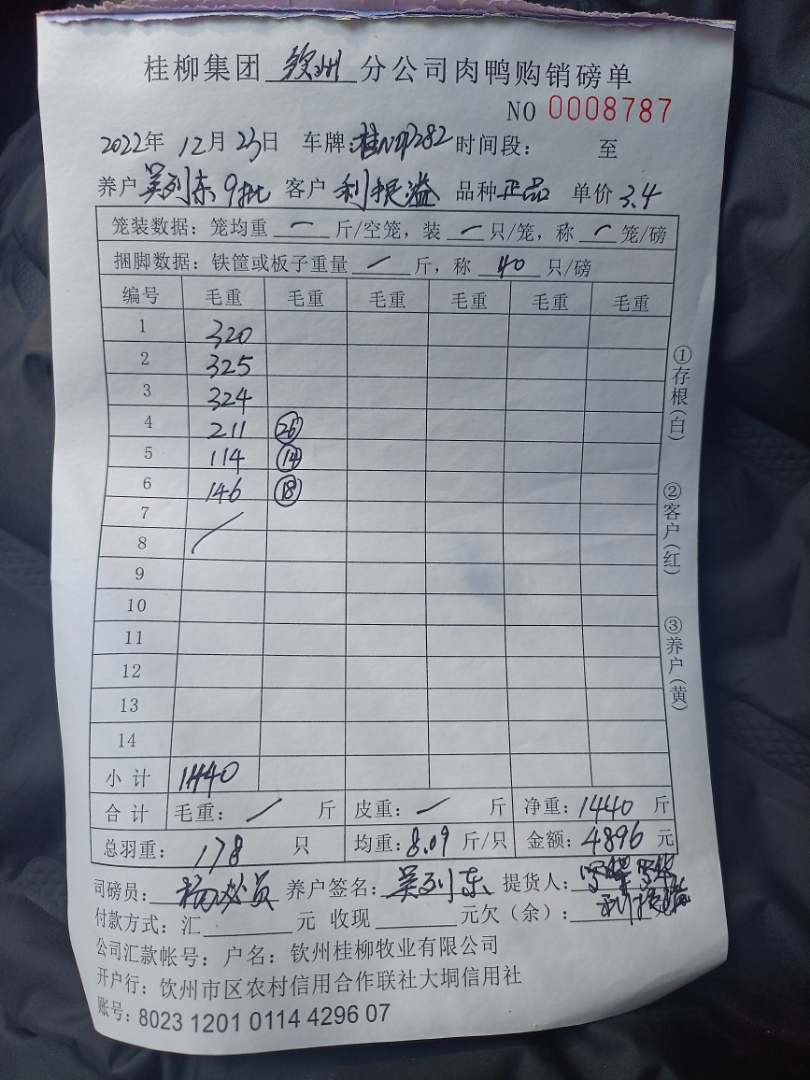 桂柳集团 钦州 分公司肉鸭购销磅单
NO 0008787
2022年 12月 23日 车牌: 桂N 282 时间段: 至
养户 吴列东 9批 客户 利提溢 品种 正品 单价 3.4
笼装数据: 笼均重 一 斤/空笼, 装 一 只/笼, 称 一 笼/磅
捆脚数据: 铁筐或板子重量 / 斤, 称 40 只/磅
编号 毛重 毛重 毛重 毛重 毛重 毛重
1 320
2 325
3 324
4 211 26
5 114 14
6 146 18
7
8
9
10
11
12
13
14
小计 1440
合计 毛重: / 斤 皮重: 一 斤 净重: 1440 斤
总羽重: 178 只 均重: 8.09 斤/只 金额: 4896 元
司磅员: 养户签名: 吴列东 提货人:
付款方式: 汇 元 收现 元欠(余):
公司汇款帐号: 户名: 钦州桂柳牧业有限公司
开户行: 钦州市区农村信用合作联社大垌信用社
账号: 8023 1201 0114 4296 07
①存根(白)
②客户(红)
③养户(黄)